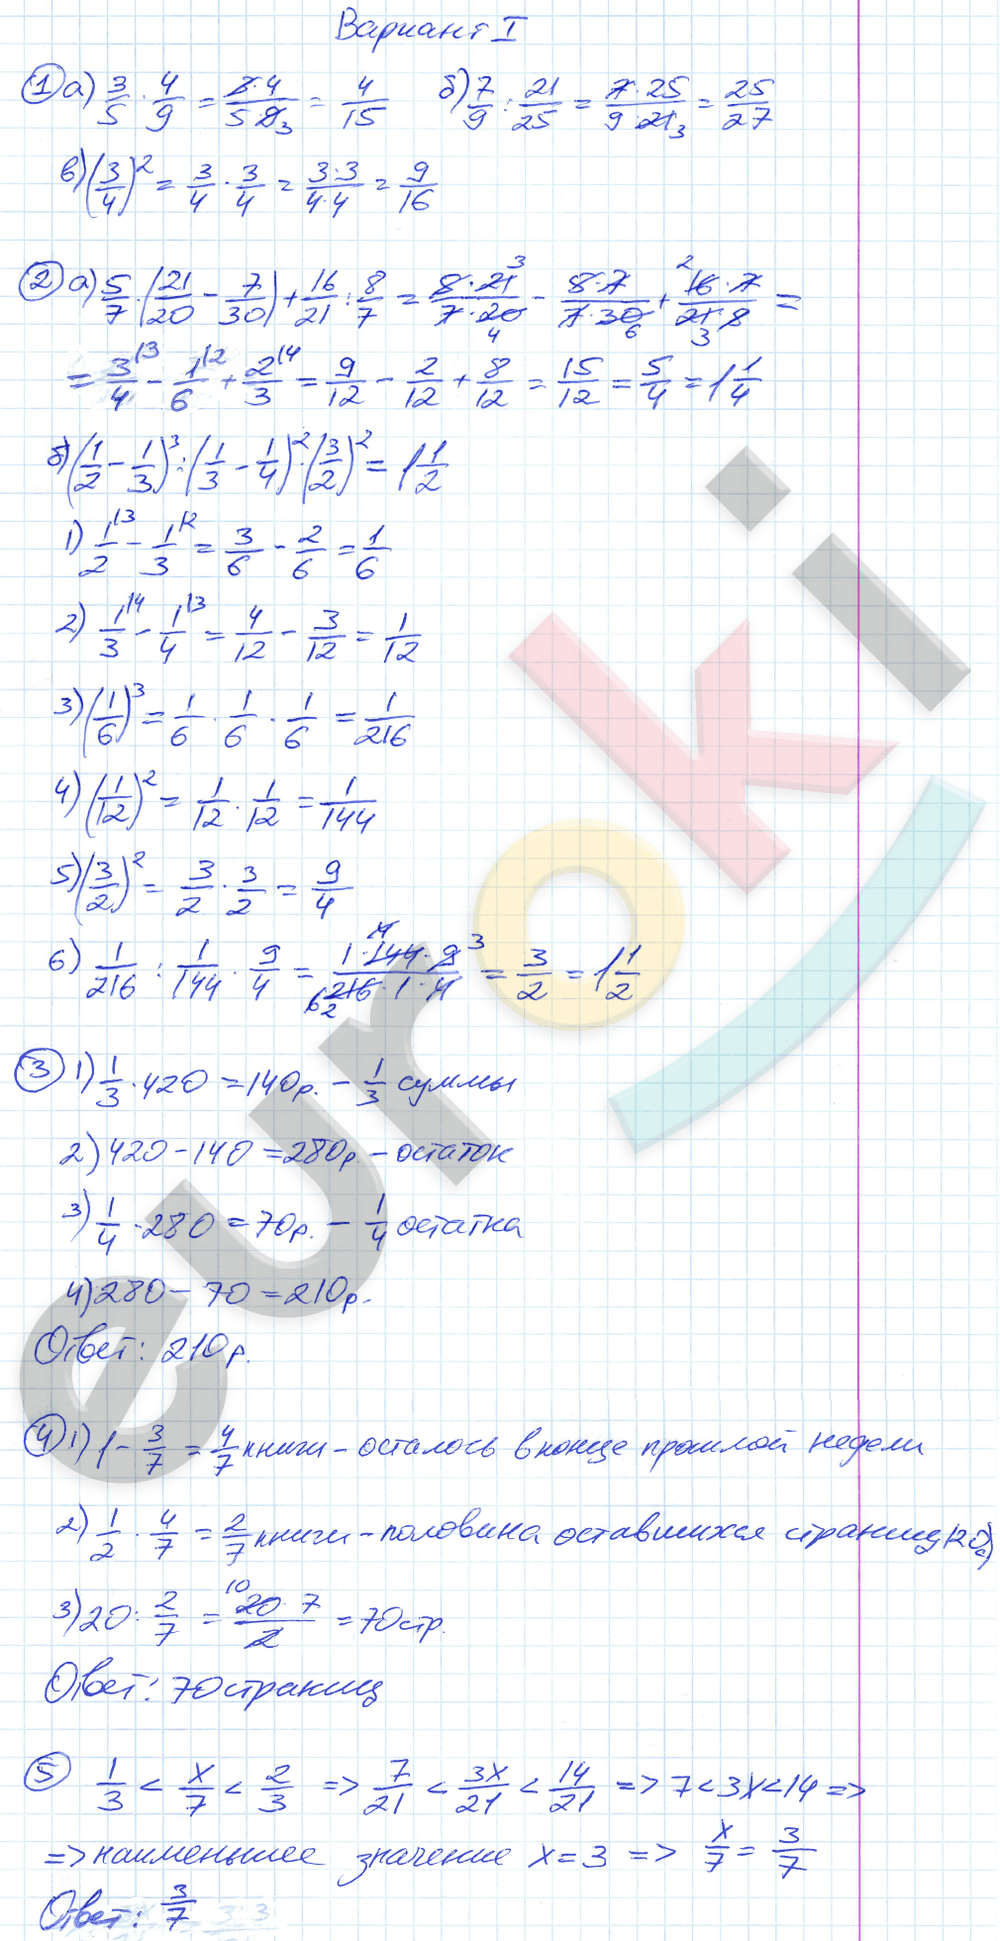 Вариант I
① а) 3/5 · 4/9 = 3·4/5·9 3 = 4/15 б) 7/9 : 21/25 = 7·25/9·21 3 = 25/27
в) (3/4)² = 3/4 · 3/4 = 3·3/4·4 = 9/16
② а) 5/7 · (21/20 - 7/30) + 16/21 : 8/7 = 5·21 3/7·20 4 - 5·7/7·30 6 + 2 16·7/21·8 3 =
= 3\3/4 - 1\2/6 + 2\4/3 = 9/12 - 2/12 + 8/12 = 15/12 = 5/4 = 1 1/4
б) (1/2 - 1/3)³ : (1/3 - 1/4)² · (3/2)² = 1 1/2
1) 1\3/2 - 1\2/3 = 3/6 - 2/6 = 1/6
2) 1\4/3 - 1\3/4 = 4/12 - 3/12 = 1/12
3) (1/6)³ = 1/6 · 1/6 · 1/6 = 1/216
4) (1/12)² = 1/12 · 1/12 = 1/144
5) (3/2)² = 3/2 · 3/2 = 9/4
6) 1/216 : 1/144 · 9/4 = 1·144·9 3/216·1·4 = 3/2 = 1 1/2
③ 1) 1/3 · 420 = 140р. - 1/3 суммы
2) 420 - 140 = 280р. - остаток
3) 1/4 · 280 = 70р. - 1/4 остатка
4) 280 - 70 = 210р.
Ответ: 210р.
④ 1) 1 - 3/7 = 4/7 книги - осталось в конце прошлой недели
2) 1/2 · 4/7 = 2/7 книги - половина оставшихся страниц (20с)
3) 20 : 2/7 = 10 20·7/2 = 70стр.
Ответ: 70 страниц
⑤ 1/3 < x/7 < 2/3 => 7/21 < 3x/21 < 14/21 => 7 < 3x < 14 =>
=> наименьшее значение x = 3 => x/7 = 3/7
Ответ: 3/7
euroki